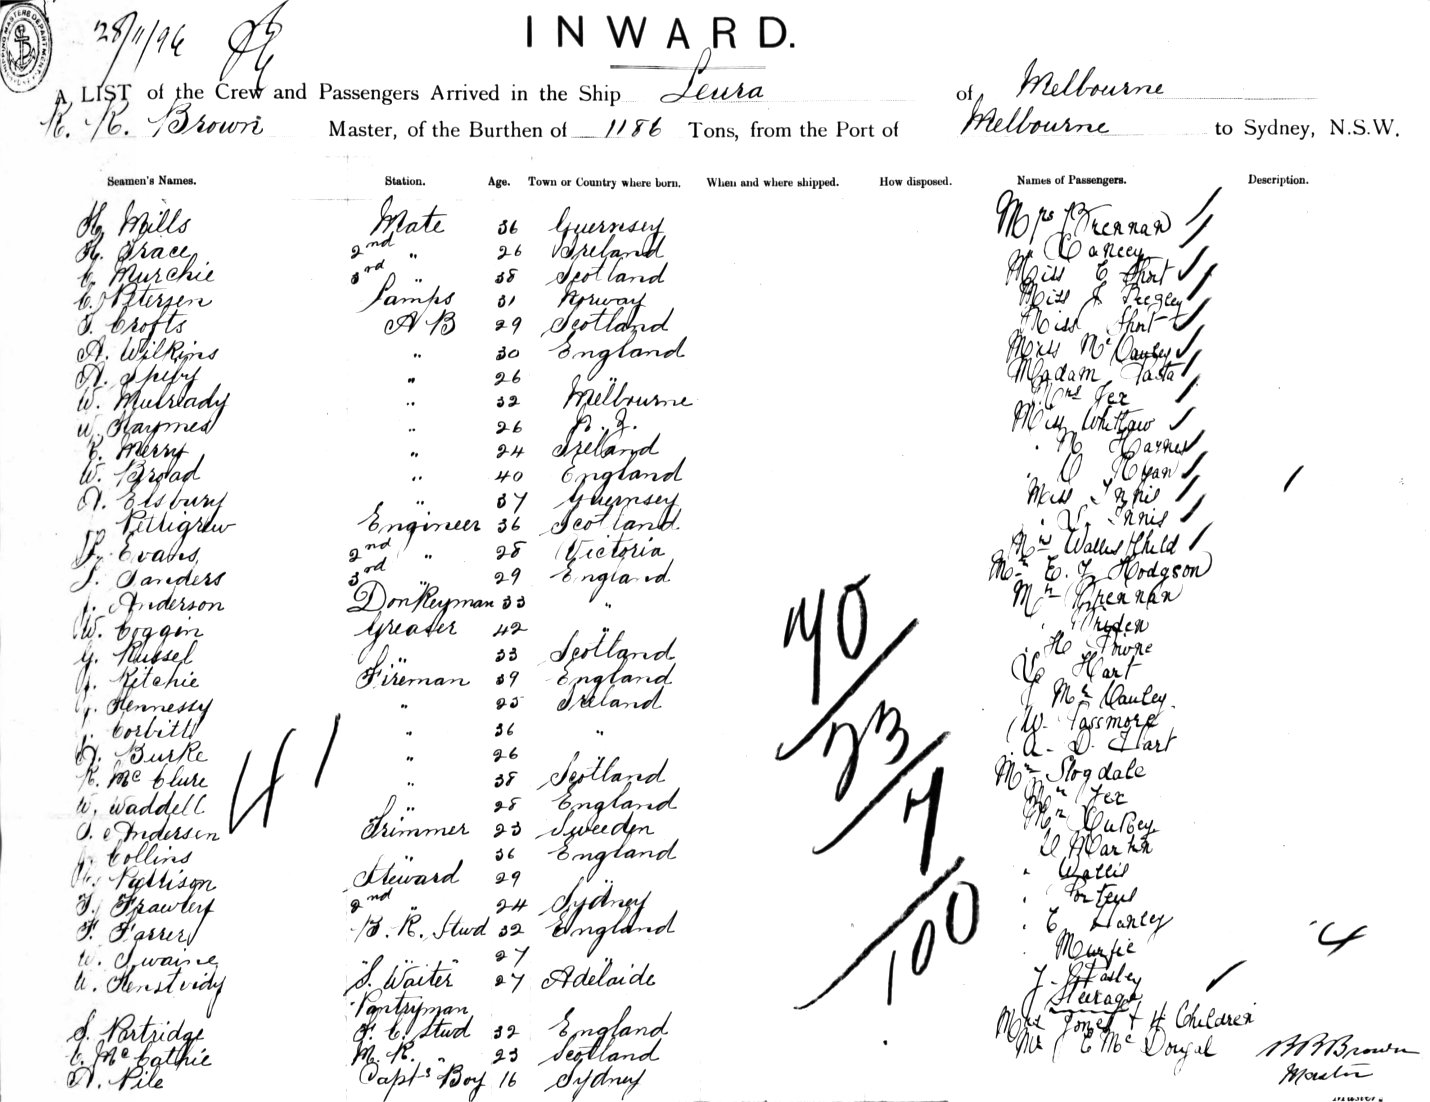 28/11/96
INWARD.
A LIST of the Crew and Passengers Arrived in the Ship Leura of Melbourne
K. K. Brown Master, of the Burthen of 1186 Tons, from the Port of Melbourne to Sydney, N.S.W.
Seamen's Names. Station. Age. Town or Country where born. When and where shipped. How disposed. Names of Passengers. Description.
H. Mills Mate 36 Guernsey Mrs Brennan
H. Grace 2nd " 26 Ireland " Cancey
C. Murchie 3rd " 38 Scotland Miss E Short
C. J. Petersen Lamps 31 Norway Miss J
T. Crofts A B 29 Scotland Miss Short
A. Wilkins " 30 England Miss McCauley
A. " 26 " Madam Tasta
W. Mulready " 32 Melbourne Mrs Fex
W. Haymes " 26 N. Z. Miss Whitlaw
C. Merry " 24 Ireland " N Haynes
W. Broad " 40 England " O Ryan
A. Elsbury " 37 Guernsey Miss Innis
Pettigrew Engineer 36 Scotland " Innis
Evans 2nd " 28 Victoria Mrs Wallis & Child
J. Sanders 3rd " 29 England Mr E. J. Hodgson
J. Anderson Donkeyman 33 " Mr Brennan
W. Coggin Greaser 42 "
G. Russel " 33 Scotland " H.
J. Ritchie Fireman 39 England G Hart
J. Hennessy " 25 Ireland J McCauley
J. Corbitt " 36 " W. Passmore
A. Burke " 26 " A. D. Hart
R. McClure " 38 Scotland Mr Stogdale
W. Waddell " 28 England Mr Fex
S. Andersen Trimmer 23 Sweeden Mr
J. Collins " 36 England Martin
Pattison Steward 29 " " Wallis
T. Frawley 2nd " 24 Sydney " Porteus
F. Farrer F. R. Stwd 32 England " E Hanley
W. Swaine " " " 27 " "
W. S. Waiter 27 Adelaide J.
Pantryman Steerage
S. Partridge F. C. Stwd 32 England Mrs Jones & 4 Children
C. McCathie M. R. " 23 Scotland Mr J E McDougal
A. Pile Capts Boy 16 Sydney
41
70
23
7
100
1
4
Brown
Master